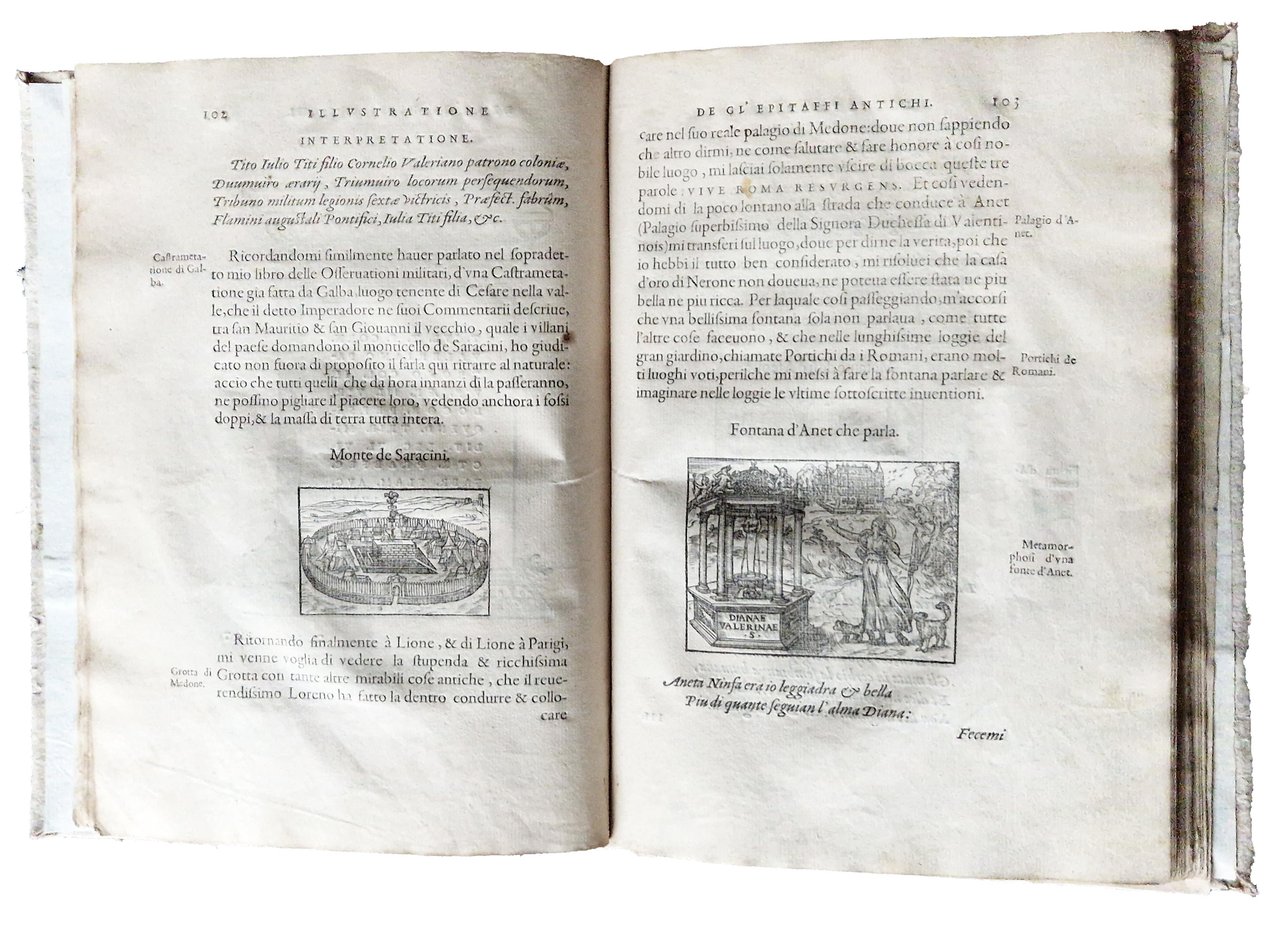 102 ILLVSTRATIONE
INTERPRETATIONE.
Tito Iulio Titi filio Cornelio Valeriano patrono coloniæ,
Duumuiro ærarij, Triumuiro locorum persequendorum,
Tribuno militum legionis sextæ victricis, Præfect. fabrûm,
Flamini augustali Pontifici, Iulia Titi filia, &c.
Castrameta-
tione di Gal-
ba.
Ricordandomi similmente hauer parlato nel sopradet-
to mio libro delle Osseruationi militari, d'vna Castrameta-
tione gia fatta da Galba luogo tenente di Cesare nella val-
le, che il detto Imperadore ne suoi Commentarii descriue,
tra san Mauritio & san Giouanni il vecchio, quale i villani
del paese domandono il monticello de Saracini, ho giudi-
cato non fuora di proposito il farla qui ritrarre al naturale:
accio che tutti quelli che da hora innanzi di la passeranno,
ne possino pigliare il piacere loro, vedendo anchora i fossi
doppi, & la massa di terra tutta intera.
Monte de Saracini.
Ritornando finalmente à Lione, & di Lione à Parigi,
mi venne voglia di vedere la stupenda & ricchissima
Grotta di
Medone.
Grotta con tante altre mirabili cose antiche, che il reue-
rendissimo Loreno ha fatto la dentro condurre & collo-
care
DE GL' EPITAFFI ANTICHI. 103
care nel suo reale palagio di Medone: doue non sappiendo
che altro dirmi, ne come salutare & fare honore à cosi no-
bile luogo, mi lasciai solamente vscire di bocca queste tre
parole: VIVE ROMA RESVRGENS. Et cosi veden-
domi di la poco lontano alla strada che conduce à Anet
(Palagio superbissimo della Signora Duchessa di Valenti-
nois) mi transferi sul luogo, doue per dirne la verita, poi che
Palagio d'A-
net.
io hebbi il tutto ben considerato, mi risoluei che la casa
d'oro di Nerone non doueua, ne poteua essere stata ne piu
bella ne piu ricca. Per laquale cosi passeggiando, m'accorsi
che vna bellissima fontana sola non parlaua, come tutte
l'altre cose faceuono, & che nelle lunghissime loggie del
gran giardino, chiamate Portichi da i Romani, erano mol-
ti luoghi voti, perilche mi messi à fare la fontana parlare &
Portichi de
Romani.
imaginare nelle loggie le vltime sottoscritte inuentioni.
Fontana d'Anet che parla.
DIANAE
VALERINAE
.S.
Metamor-
phosi d'vna
fonte d'Anet.
Aneta Ninfa era io leggiadra & bella
Piu di quante seguian l'alma Diana:
Fecemi